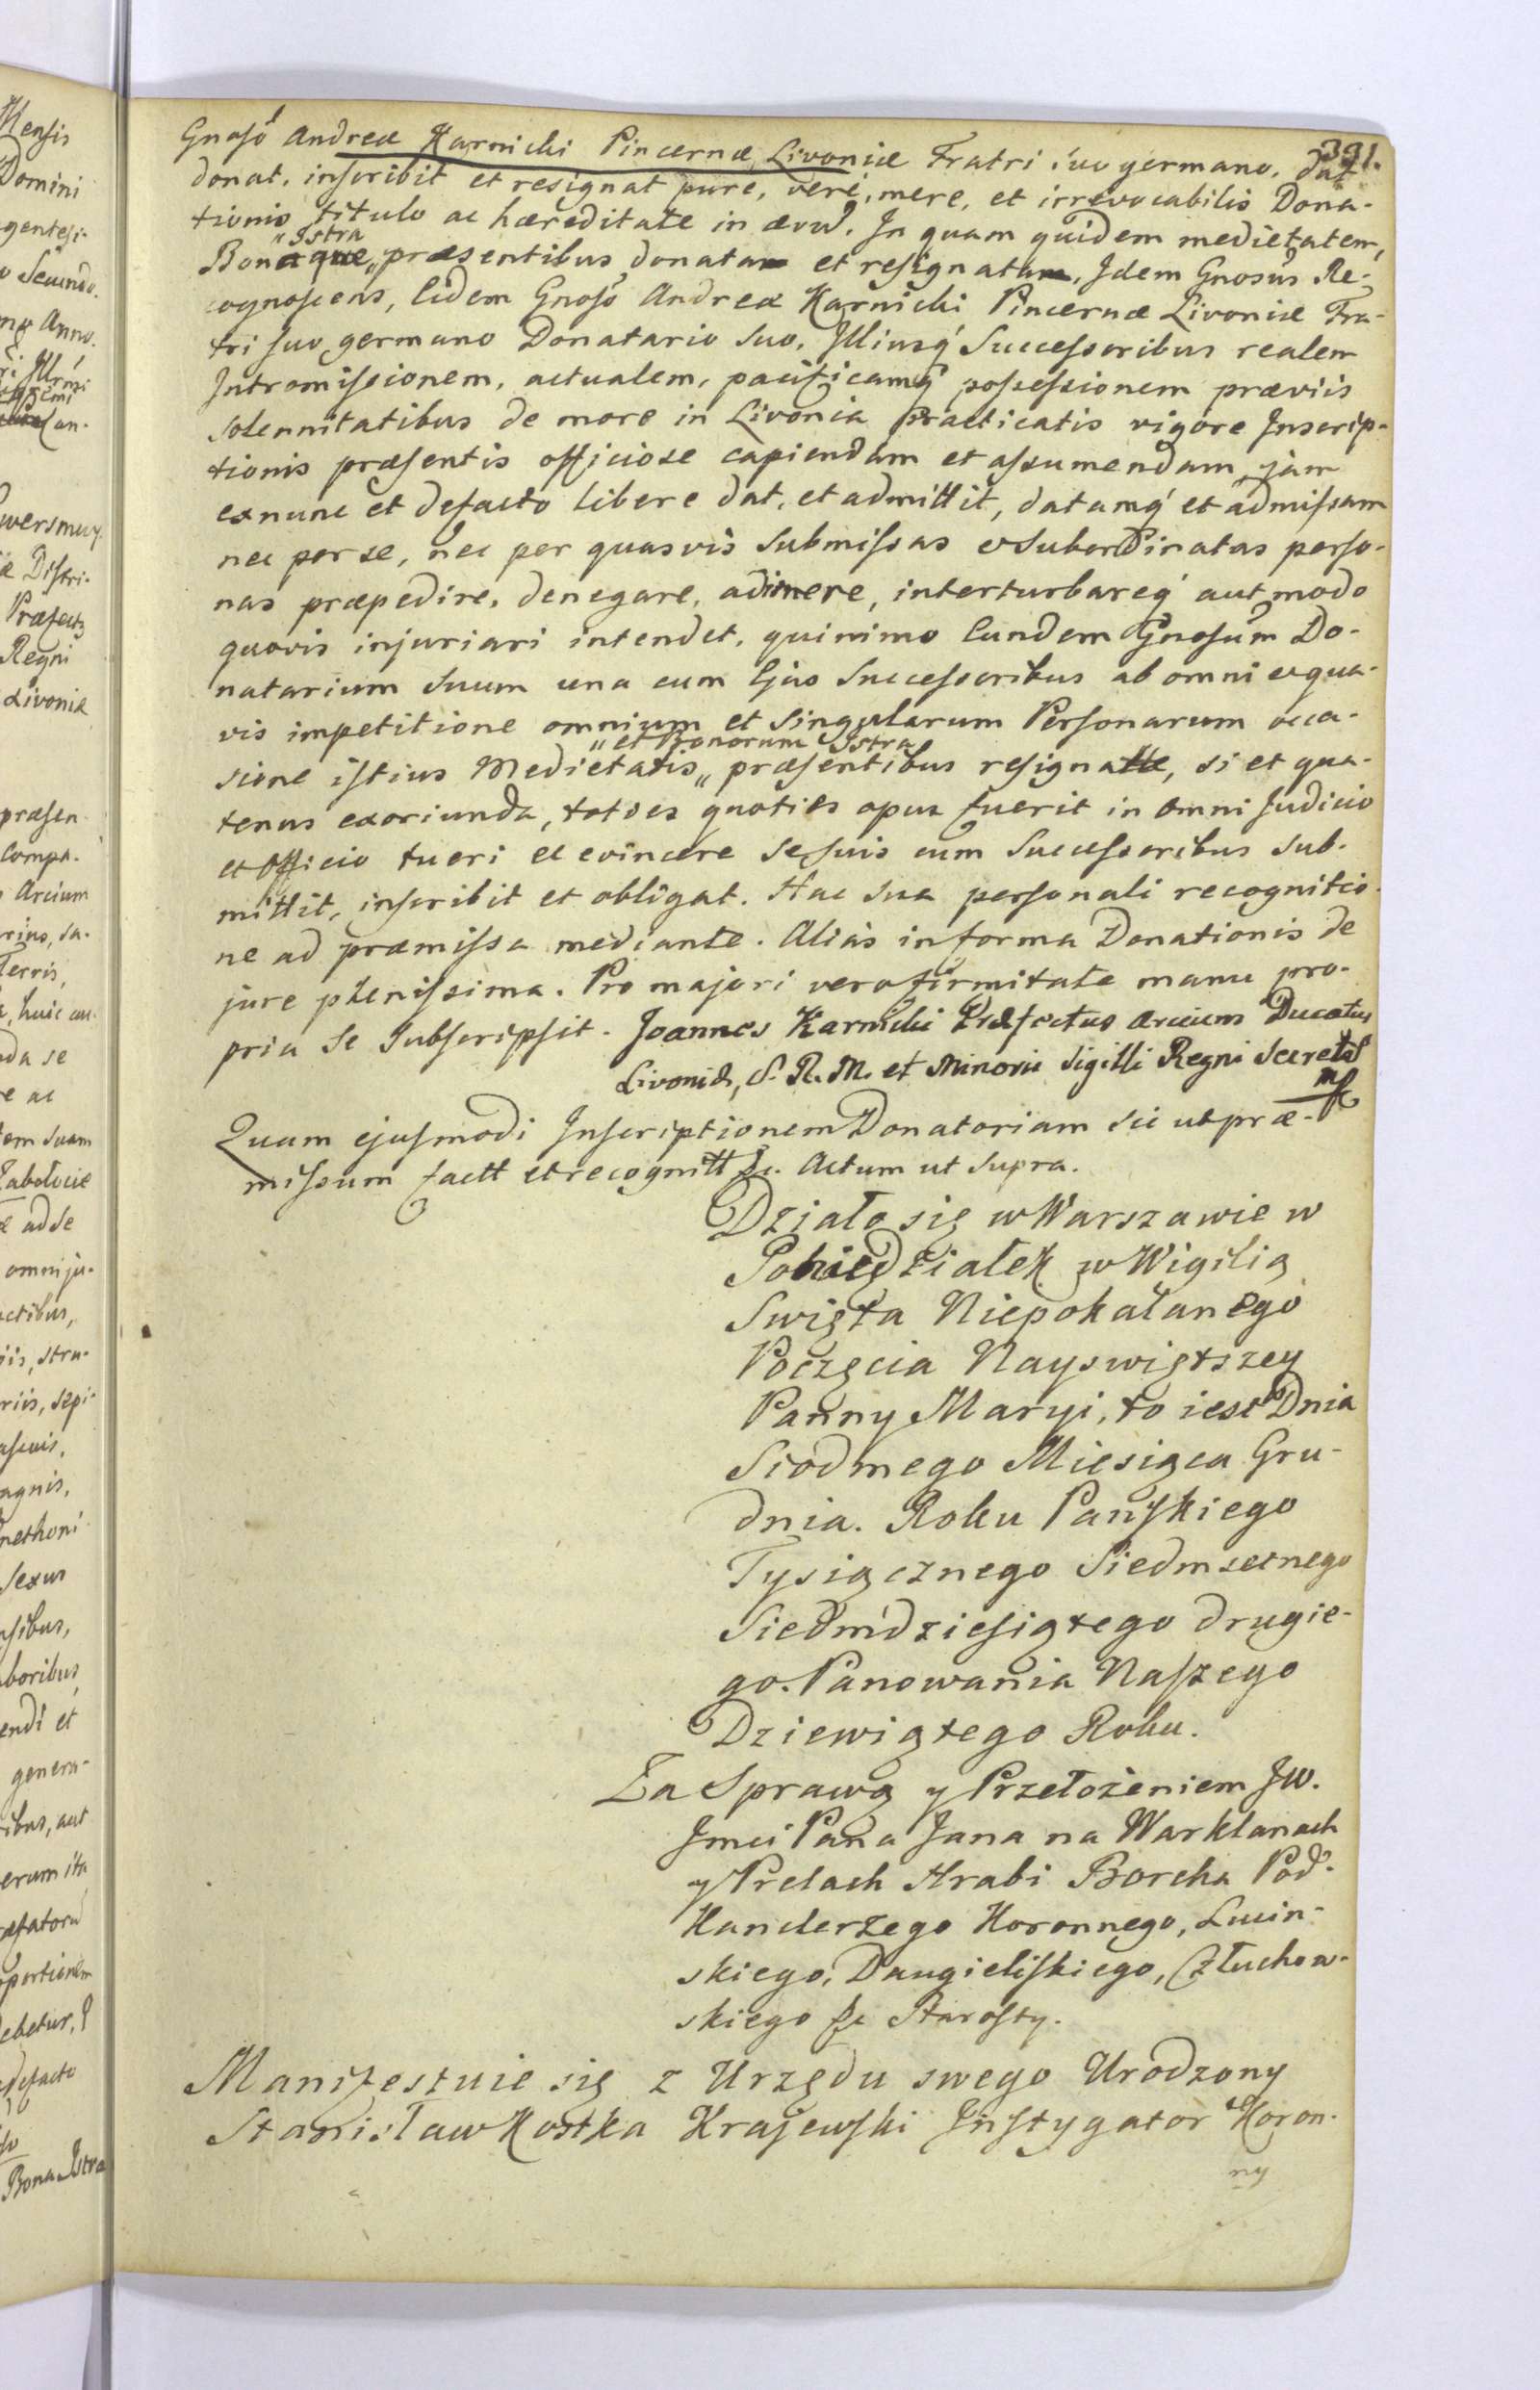 391.
Gnosó Andreæ Karnicki Pincernæ Livoniæ Fratri suo germano, dat
donat, inscribit et resignat pure, vere, mere, et irrevocabilis Dona-
tionis titulo ac hæreditate in ævũ. In quam quidem medietatem,
"Istra
Bonaque „ præsentibus donata et resignata, Idem Gnosus Re-
cognoscens, Eidem Gnosó Andreæ Karnicki Pincernæ Livoniæ Fra-
tri suo germano Donatario Suo, Illiusq́ Successoribus realem
Intromissionem, actualem, pacificamq́ possessionem præviis
solennitatibus de more in Livonia Practicatis vigore Inscrip-
tionis præsentis officiose capiendam et assumendam jam
exnunc et defacto libere dat, et admittit, datamq́ et admissam
nec per se, nec per quasvis Submissas et Subordinatas perso-
nas præpedire, denegare, adimere, interturbareq́ aut modo
quovis injuriari intendet, quinimo Eundem Gnosum Do-
natarium Suum una cum Ejus Successoribus ab omni et qua-
vis impetitione omnium et Singularum Personarum occa-
"et Bonorum Istra
sione istius Medietatis „ præsentibus resignatæ, si et qua-
tenus exoriunda, toties quoties opus fuerit in omni Judicio
et Officio tueri et evincere Se Suis cum Successoribus sub-
mittit, inscribit et obligat. Hac sua personali recognitio-
ne ad præmissa mediante. Alias in forma Donationis de
jure plenissima. Pro majori vero firmitate manu pro-
pria Se Subscripsit. Joannes Karnicki Præfectus Arcium Ducatus
Livoniæ, S. R. M. et Minoris Sigilli Regni Secretar
mp
Quam ejusmodi Inscriptionem Donatoriam sic ut præ-
missum factt et recognitt &c. Actum ut Supra.
Działo się w Warszawie w
Poniedziałek w Wigilią
Swięta Niepokalanego
Poczęcia Nayswiętszey
Panny Maryi, to iest Dnia
Siodmego Miesiąca Gru-
dnia. Roku Pańskiego
Tysiącznego Siedmsetnego
Siedmdziesiątego drugie-
go. Panowania Naszego
Dziewiątego Roku.
Za Sprawą y Przełożeniem JW.
Jmci Pana Jana na Warklanach
y Prelach Hrabi Borcha Pod-
Kanclerzego Koronnego, Lucin-
skiego, Daugieliskiego, Człuchow-
skiego &c Starosty.
Manifestuie się z Urzędu swego Urodzony
Stanisław Kostka Krajewski Instygator Koron-
ny